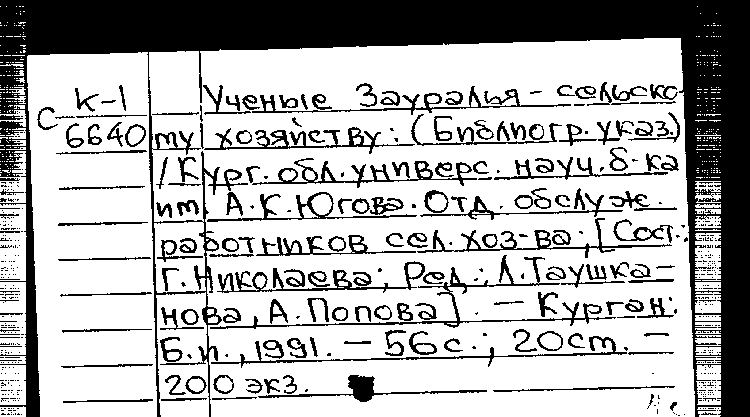 К-1 Ученые Зауралья - сельско-
С 6640 му хозяйству: (Библиогр. указ.)
/ Кург. обл. универс. науч. б-ка
им. А.К.Югова. Отд. обслуж.
работников сел. хоз-ва; [Сост.:
Г. Николаева; Ред.: Л. Таушка-
нова, А. Попова]. — Курган:
Б.и., 1991. — 56 с.; 20 см. —
200 экз.